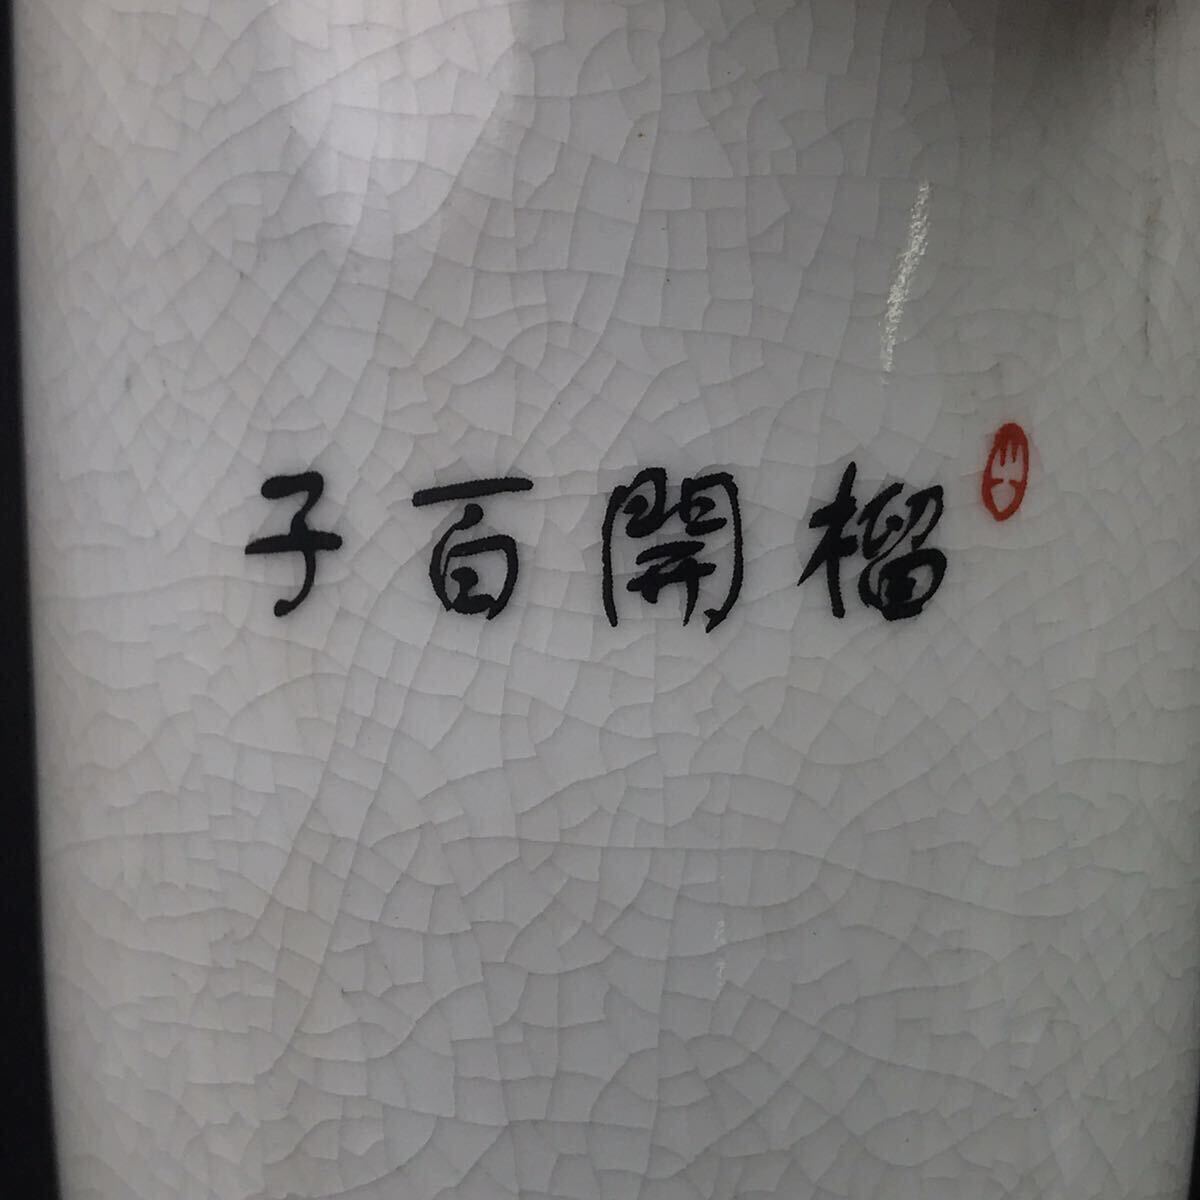 榴開百子